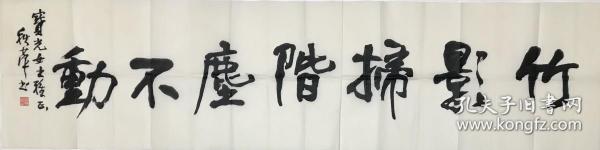 竹影掃階塵不動
寶光女士雅正
孔夫子旧书网
www.kongfz.com